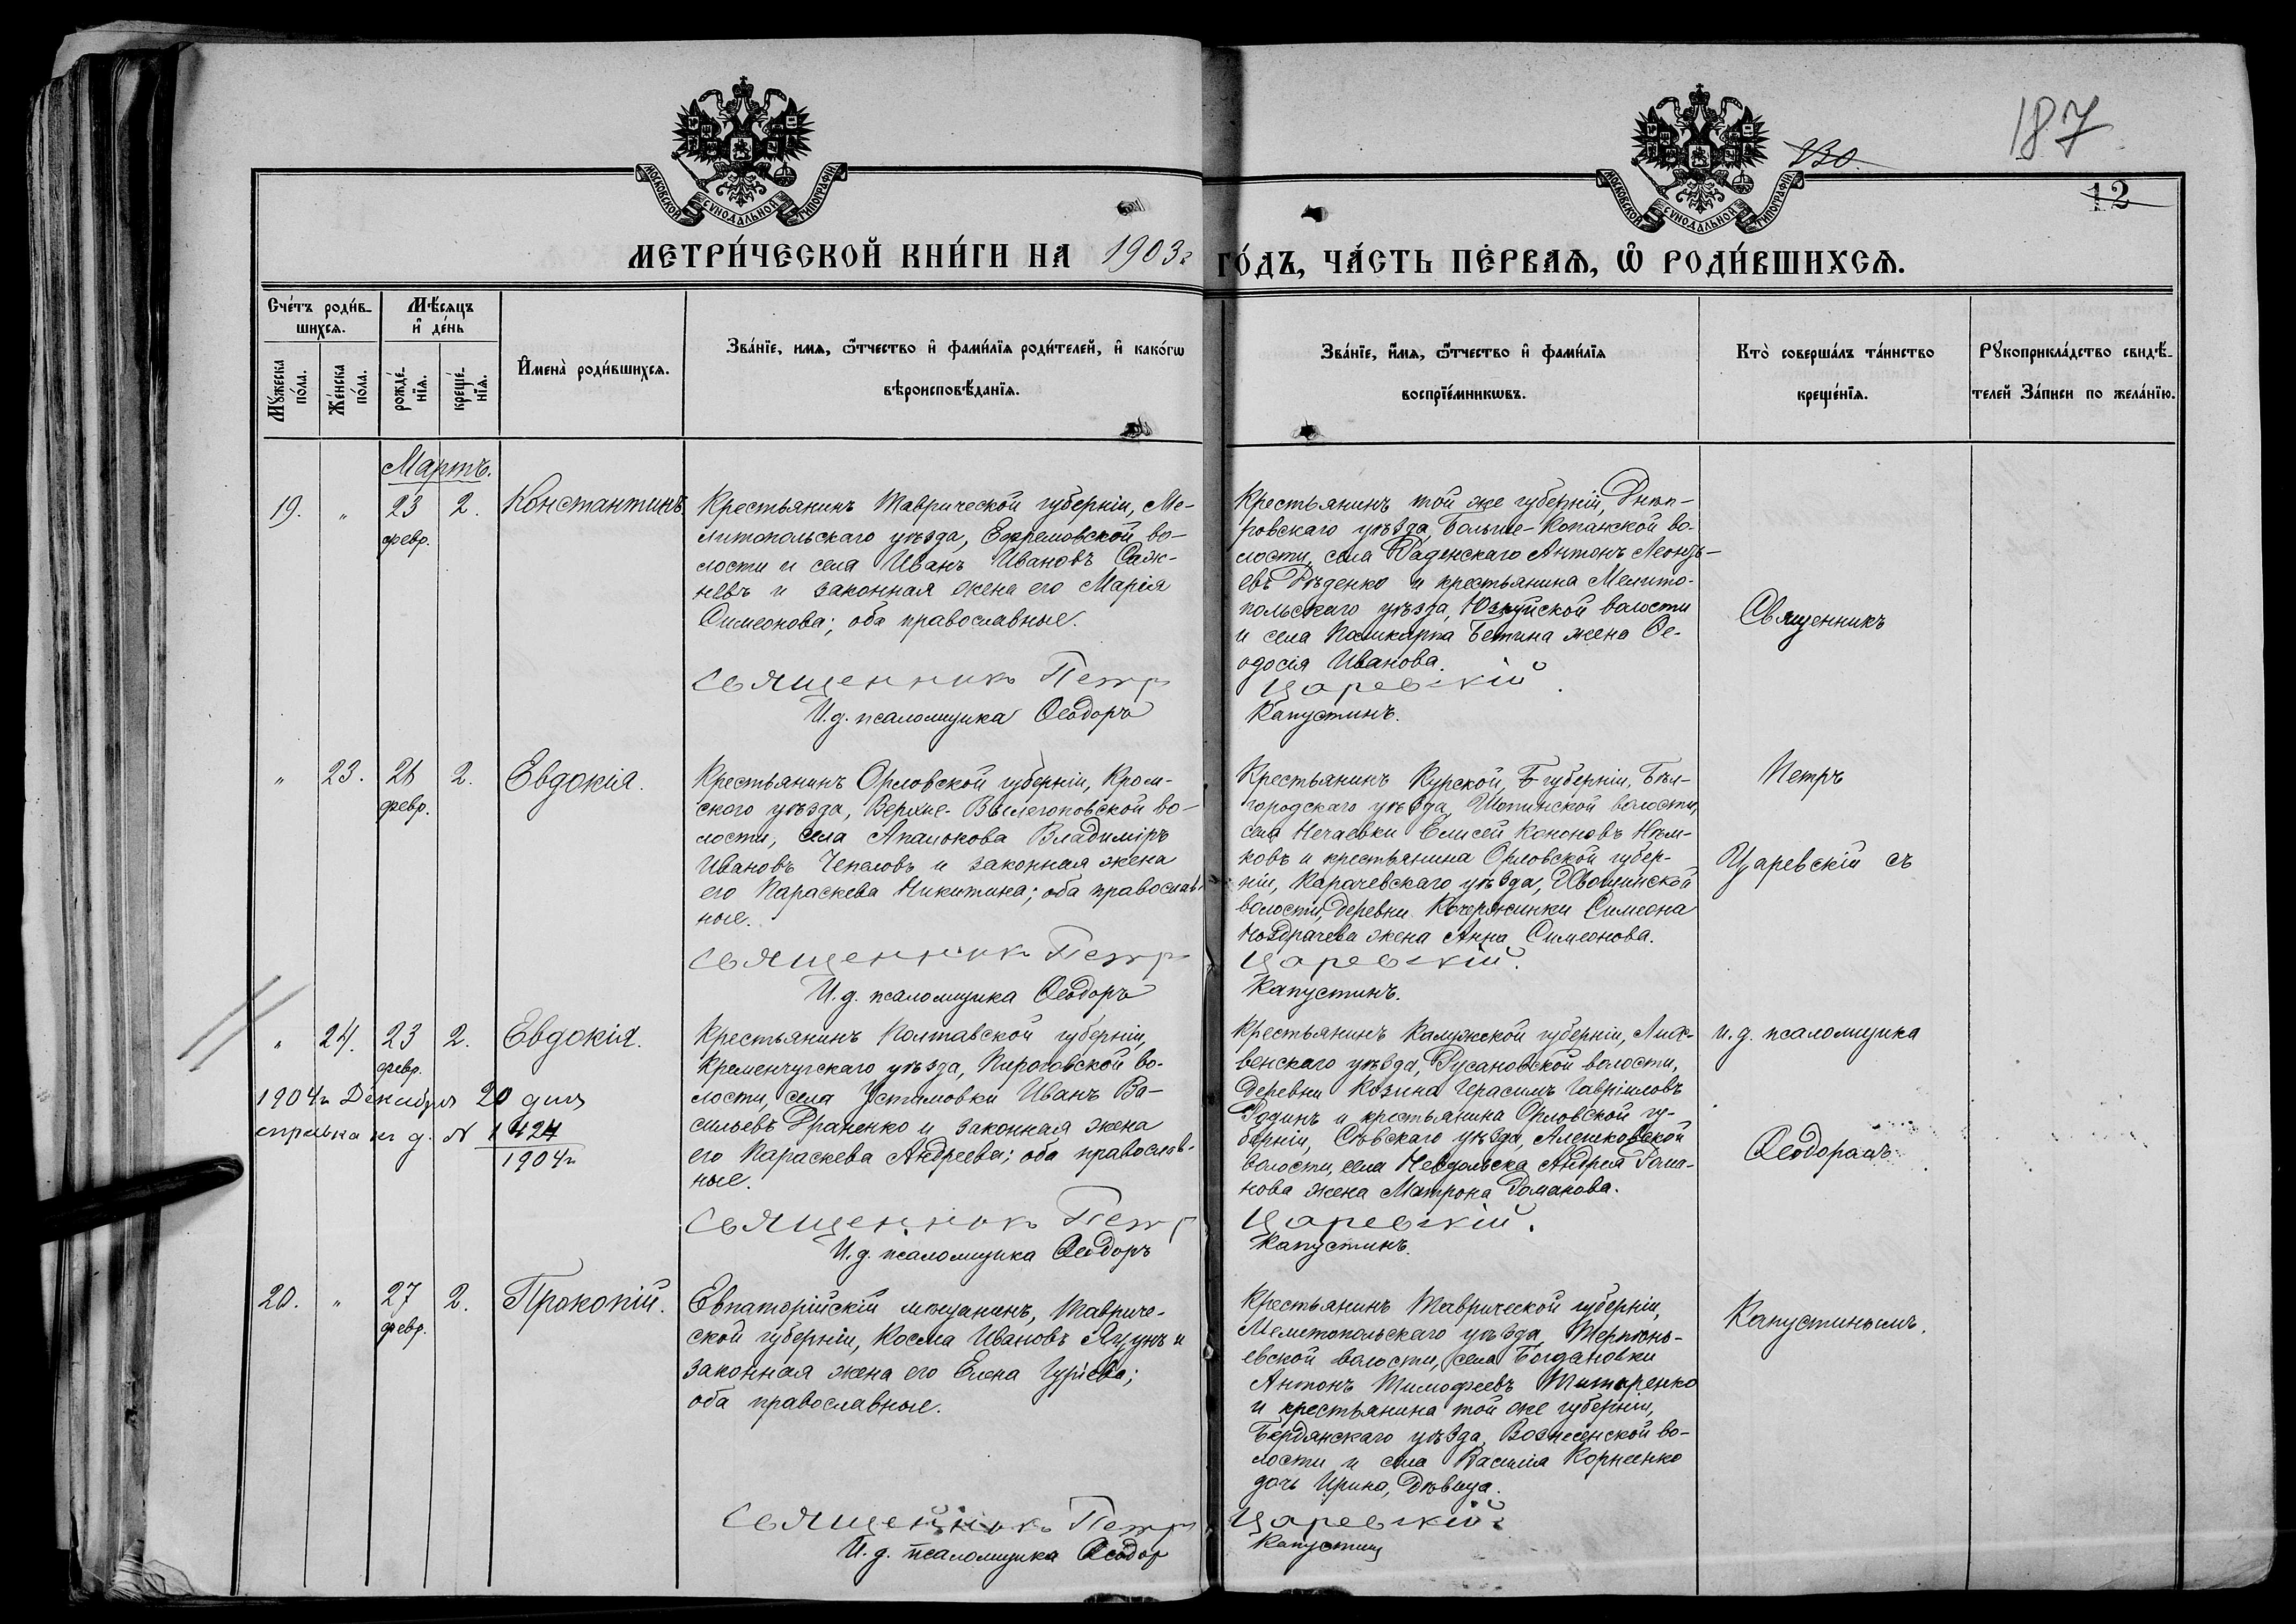 187
230.
12
МОСКОВСКОЙ СѴНОДАЛЬНОЙ ТИПОГРАФІИ
МОСКОВСКОЙ СѴНОДАЛЬНОЙ ТИПОГРАФІИ
МЕТРИ́ЧЕСКОЙ КНИ́ГИ НА 1903г ГО́ДЪ, ЧА́СТЬ ПЕ́РВАѦ, Ѡ҆ РОДИ́ВШИХСѦ.
Сче́тъ роди́в-
шихсѧ.
Мѣ́сѧцъ
и҆ де́нь
Мꙋ́жеска
по́ла.
Же́нска
по́ла.
рожде́-
нїѧ.
креще́-
нїѧ.
И҆мена̀ роди́вшихсѧ.
Зва́нїе, имѧ, ѻ҆́тчество и҆ фами́лїѧ роди́телей, и҆ како́гѡ
вѣроисповѣ́данїѧ.
Зва́нїе, и҆́мѧ, ѻ҆́тчество и҆ фами́лїѧ
воспрїе́мникѡвъ.
Кто̀ соверша́лъ та́инство
креще́нїѧ.
Рꙋкоприкла́дство свидѣ́-
телей За́писи по жела́нїю.
Мартъ.
19. " 23 2. Константинъ
февр.
Крестьянинъ Таврической губерніи, Ме-
литопольскаго уѣзда, Ефремовской во-
лости и села Иванъ Ивановъ Саж-
невъ и законная жена его Марія
Симеонова; оба православные.
Священникъ Петръ
И. д. псаломщика Ѳеодоръ
Крестьянинъ той же губерніи, Днѣп-
ровскаго уѣзда, Больше-Копанской во-
лости, села Раденскаго Антонъ Леонтъ-
евъ Рѣденко и крестьянина Мелито-
польскаго уѣзда, Юзкуйской волости
и села Бетина жена Ѳе-
одосія Иванова.
Царевскій.
Капустинъ.
Священникъ
" 23. 26 2. Евдокія.
февр.
Крестьянинъ Орловской губерніи, Кром-
ского уѣзда, Верхне- во-
лости, села Апалькова Владиміръ
Ивановъ Чепаловъ и законная жена
его Параскева Никитина; оба православ-
ные.
Священникъ Петръ
И. д. псаломщика Ѳеодоръ
Крестьянинъ Курской губерніи, Бѣл-
городскаго уѣзда, Шопинской волости,
села Нечаевки Елисей Кононовъ Нѣм-
ковъ и крестьянина Орловской губер-
ніи, Карачевскаго уѣзда, волости, деревни Симеона
Ноздрачева жена Анна Симеонова.
Царевскій.
Капустинъ.
Петръ
Царевскій съ
" 24. 23 2. Евдокія.
февр.
1904г Декабря 20 дня
справка по д. N 1424
1904г
Крестьянинъ Полтавской губерніи,
Кременчугскаго уѣзда, Пироговской во-
лости, села Устимовки Иванъ Ва-
сильевъ Драненко и законная жена
его Параскева Андреева; оба православ-
ные.
Священникъ Петръ
И. д. псаломщика Ѳеодоръ
Крестьянинъ Калужской губерніи, Лих-
венскаго уѣзда, Русановской волости,
деревни Козина Герасимъ Гавріиловъ
Родинъ и крестьянина Орловской гу-
берніи, Сѣвскаго уѣзда, Алешковской
волости, села Невдольска Андрея Рома-
нова жена Матрона Романова.
Царевскій.
Капустинъ.
и. д. псаломщика
Ѳеодоромъ
20. " 27 2. Прокопій.
февр.
Евпаторійскій мѣщанинъ, Тавриче-
ской губерніи, Косма Ивановъ Яцунъ и
законная жена его Елена Гуріева;
оба православные.
Священникъ Петръ
И. д. псаломщика Ѳеодор
Крестьянинъ Таврической губерніи,
Мелитопольскаго уѣзда, Терпѣнь-
евской волости, села Богдановки
Антонъ Тимофеевъ Титаренко
и крестьянина той же губерніи,
Бердянскаго уѣзда, Вознесенской во-
лости и села Василія Корнеенко
дочь Ирина, дѣвица.
Царевскій
Капустинъ
Капустинымъ.